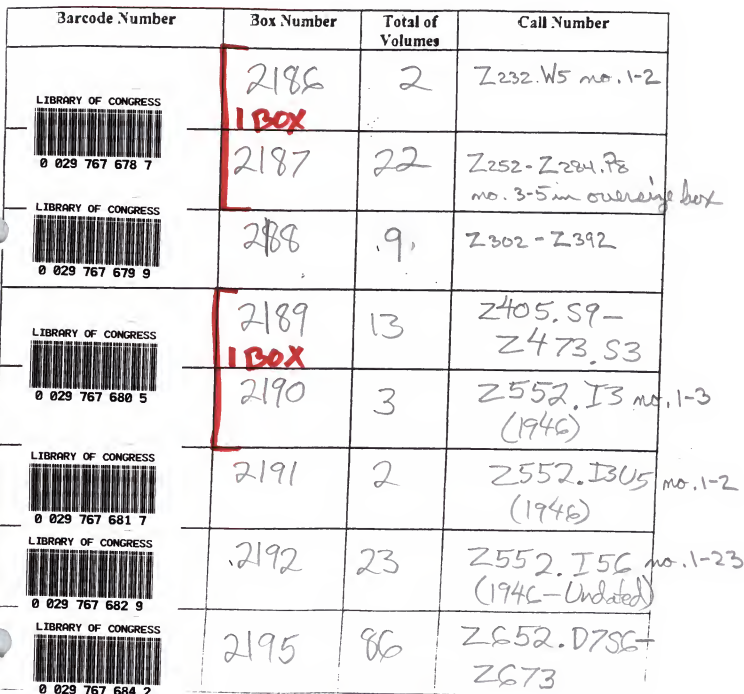 Barcode Number Box Number Total of Volumes Call Number
LIBRARY OF CONGRESS
0 029 767 678 7
2186 2 Z232.W5 no. 1-2
1 BOX
2187 22 Z252-Z284.P8
no. 3-5 in oversize box
LIBRARY OF CONGRESS
0 029 767 679 9
2188 9 Z302-Z392
LIBRARY OF CONGRESS
0 029 767 680 5
2189 13 Z405.S9-
Z473.S3
1 BOX
2190 3 Z552.I3 no. 1-3
(1946)
LIBRARY OF CONGRESS
0 029 767 681 7
2191 2 Z552.I3U5 no. 1-2
(1946)
LIBRARY OF CONGRESS
0 029 767 682 9
2192 23 Z552.I56 no. 1-23
(1946-Undated)
LIBRARY OF CONGRESS
0 029 767 684 2
2195 86 Z652.D7S6-
Z673